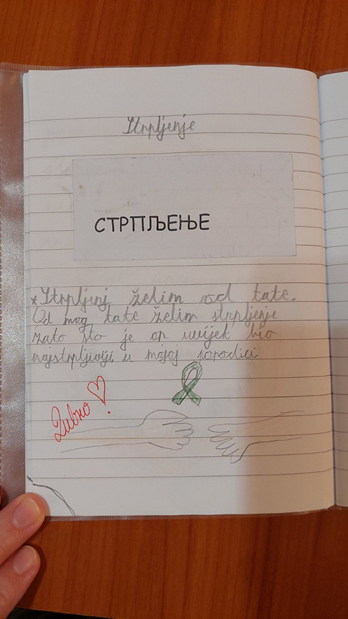 Strpljenje
СТРПЉЕЊЕ
* Strpljenj želim od tate.
Od mog tate želim strpljenje
zato što je on uvijek bio
najstrpljiviji u mojoj porodici.
Divno!